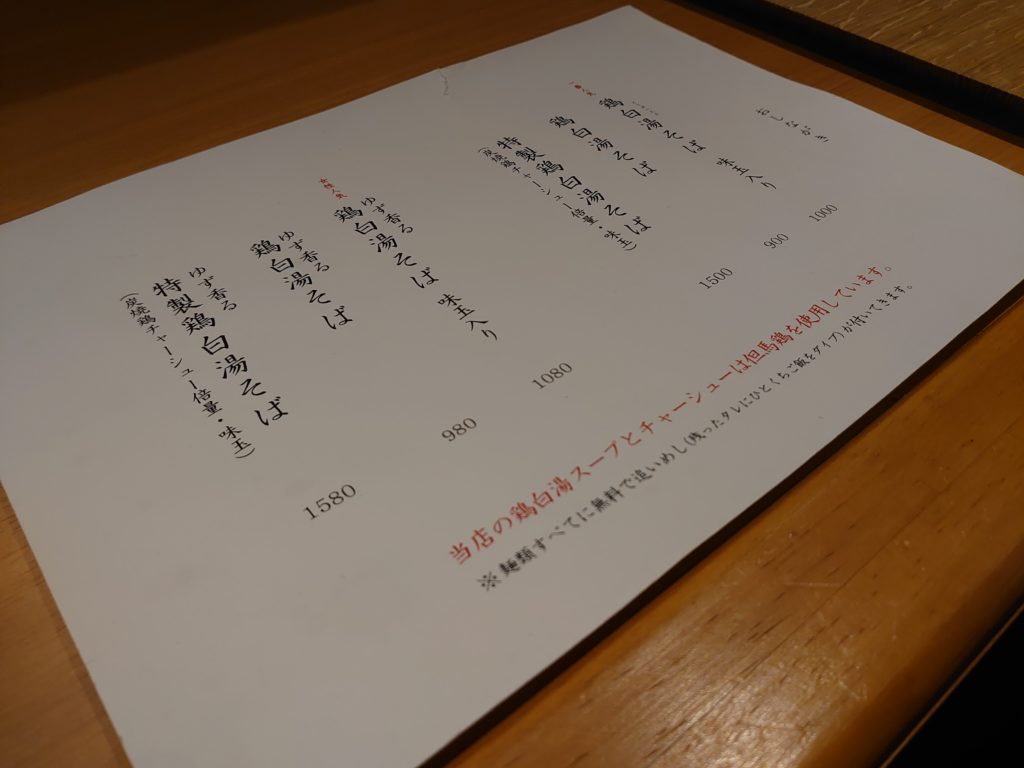 おしながき
鶏白湯そば 味玉入り
1000
鶏白湯そば
900
特製鶏白湯そば
(炭焼鶏チャーシュー倍量・味玉)
1500
ゆず香る
鶏白湯そば 味玉入り
1080
ゆず香る
鶏白湯そば
980
ゆず香る
特製鶏白湯そば
(炭焼鶏チャーシュー倍量・味玉)
1580
当店の鶏白湯スープとチャーシューは但馬鶏を使用しています。
※麺類すべてに無料で追いめし(残ったタレにひとくちご飯をダイブ)が付いてきます。